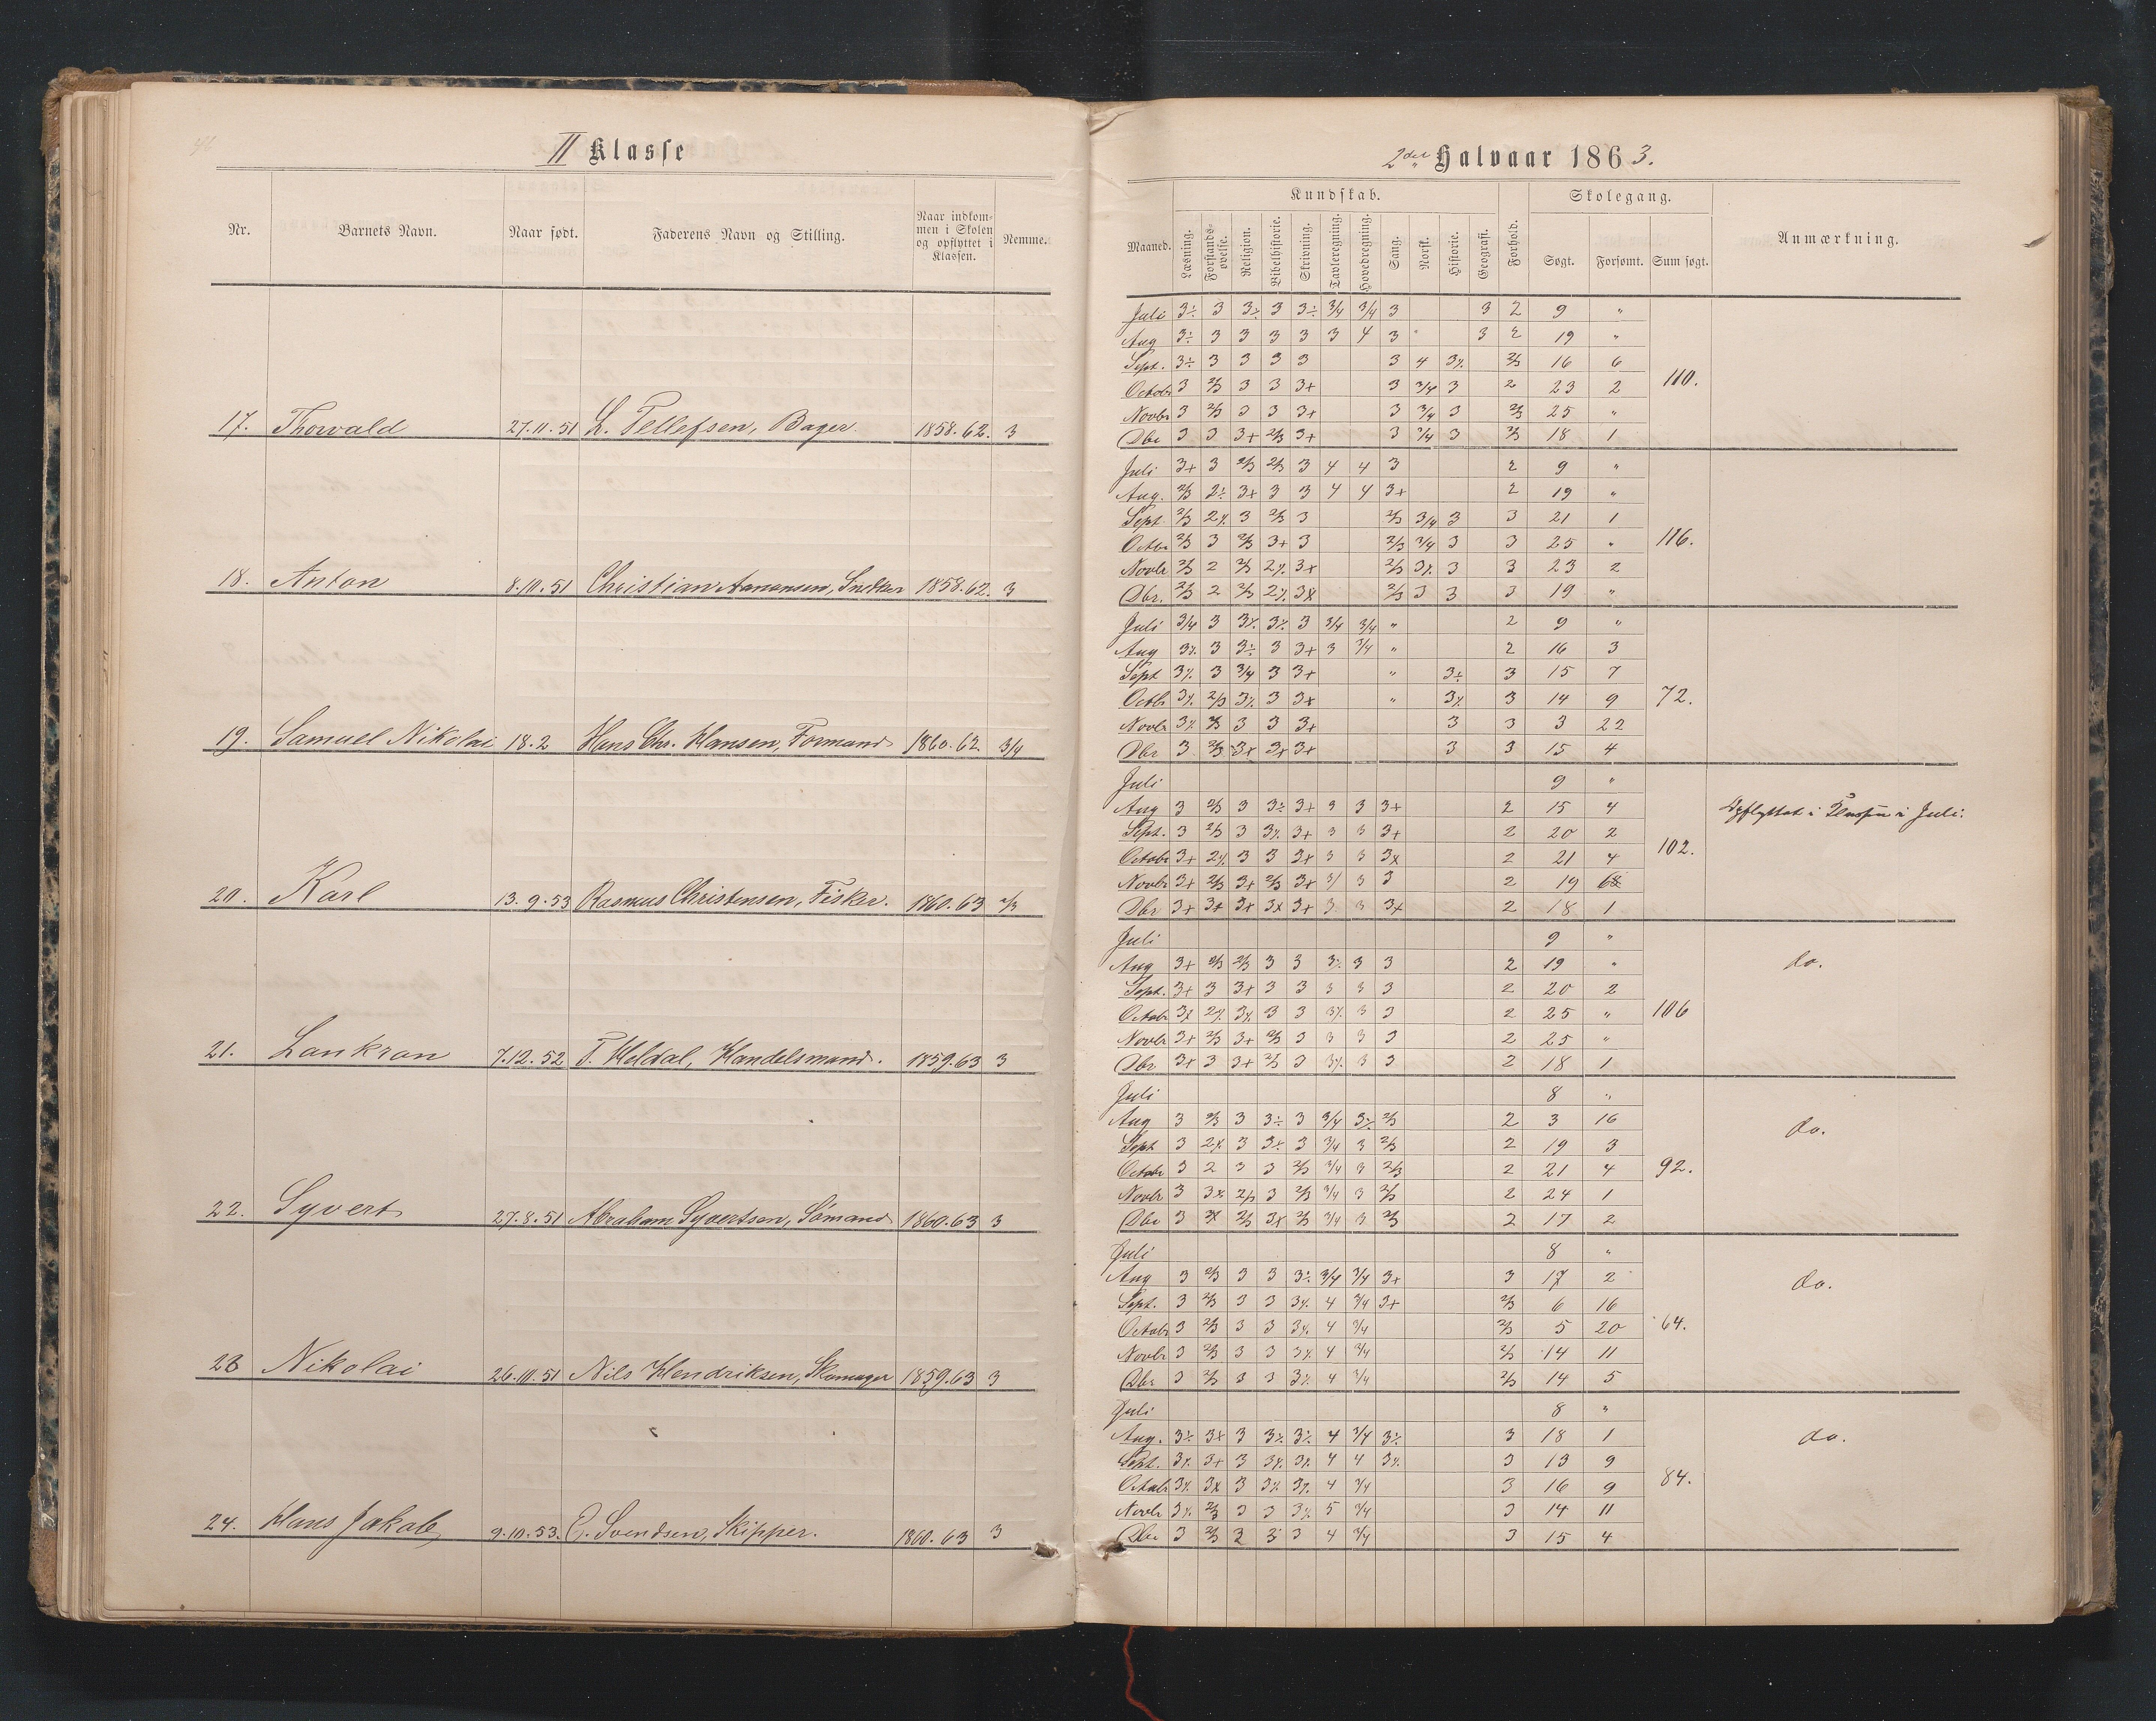 II Klasse
Nr. Barnets Navn. Naar født. Faderens Navn og Stilling. Naar indkommen i Skolen og opflyttet i Klassen. Nemme.
17. Thorvald 27.11.51 L. Tellefsen, Bager 1858.62. 3
18. Anton 8.10.51 Christian Aanonsen, Snedker 1858.62. 3
19. Samuel Nikolai 18.2 Hans Chr. Hansen, Formand 1860.62 3/4
20. Karl 13.9.53 Rasmus Christensen, Fisker. 1860.63 2/3
21. 7.12.52 T. Heldal, Handelsmand. 1859.63 3
22. Syvert 27.8.51 Abraham Syvertsen, Sömand 1860.63 3
23 Nikolai 26.10.51 Nils Hendriksen, Skomager 1859.63 3
24. Hans Jakob 9.10.53. Svendsen, Skipper. 1860.63 3
2det Halvaar 1863.
Kundskab. Skolegang.
Maaned. Læsning. Forstandsøvelse. Religion. Bibelhistorie. Skrivning. Tavleregning. Hovedregning. Sang. Norsk. Historie. Geografi. Forhold. Søgt. Forsømt. Sum søgt. Anmærkning.
Juli 3÷ 3 3÷ 3 3÷ 3/4 3/4 3 3 2 9 "
Aug 3÷ 3 3 3 3 3 4 3 3 2 19 "
Sept. 3÷ 3 3 3 3 3 4 3÷ 2/3 16 6
Octobr 3 2/3 3 3 3+ 3 3/4 3 2 23 2 110.
Novbr 3 2/3 3 3 3+ 3 3/4 3 2/3 25 "
Dbr 3 3 3+ 2/3 3+ 3 3/4 3 2/3 18 1
Juli 3+ 3 2/3 2/3 3 4 4 3 2 9 "
Aug. 2/3 2÷ 3+ 3 3 4 4 3+ 2 19 "
Sept 2/3 2÷ 3 2/3 3 2/3 3/4 3 3 21 1
Octbr 2/3 3 2/3 3+ 3 2/3 3/4 3 3 25 " 116.
Novbr 2/3 2 2/3 2÷ 3+ 2/3 3÷ 3 3 23 2
Dbr. 2/3 2 2/3 2÷ 3+ 2/3 3 3 3 19 "
Juli 3/4 3 3÷ 3÷ 3 3/4 3/4 " 2 9 "
Aug 3÷ 3 3÷ 3 3+ 3 3/4 " 2 16 3
Sept 3÷ 3 3/4 3 3+ " 3÷ 3 15 7
Octbr 3÷ 2/3 3÷ 3 3+ " 3÷ 3 14 9 72.
Novbr 3÷ 2/3 3 3 3+ 3 3 3 22
Dbr 3 2/3 3+ 3+ 3+ 3 3 15 4
Juli 9 "
Aug 3 2/3 3 3÷ 3+ 3 3 3+ 2 15 4 Opflyttet i i Juli.
Sept. 3 2/3 3 3÷ 3+ 3 3 3+ 2 20 2
Octobr 3+ 2÷ 3 3 3+ 3 3 3+ 2 21 4 102.
Novbr 3+ 2/3 3+ 2/3 3+ 3 3 2 19
Dbr 3+ 3+ 3+ 3+ 3+ 3 3 3+ 2 18 1
Juli 9 "
Aug 3+ 2/3 2/3 3 3 3÷ 3 3 2 19 " do.
Sept. 3+ 3 3+ 3 3 3 3 3 2 20 2
Octobr 3+ 2÷ 3+ 3 3 3÷ 3 3 2 25 " 106
Novbr 3+ 2/3 3+ 2/3 3 3 3 3 2 25 "
Dbr 3+ 3 3+ 2/3 3 3÷ 3 3 2 18 1
Juli 8 "
Aug 3 2/3 3 3÷ 3 3/4 3÷ 2/3 2 3 16 do.
Sept 3 2÷ 3 3+ 3 3/4 3 2/3 2 19 3
Octobr 3 2 3 3 2/3 3/4 3 2/3 2 21 4 92.
Novbr 3 3+ 2/3 3 2/3 3/4 3 2/3 2 24 1
Dbr 3 3+ 2/3 3+ 2/3 3/4 3 2/3 2 17 2
Juli 8 "
Aug 3 2/3 3 3 3÷ 3/4 3/4 3+ 3 17 2 do.
Sept. 3 2/3 3 3 3÷ 4 3/4 3+ 2/3 6 16
Octobr 3 2/3 3 3 3÷ 4 3/4 2/3 5 20 64.
Novbr 3 2/3 3 3 3÷ 4 3/4 2/3 14 11
Dbr 3 2/3 3 3 3÷ 4 3/4 2/3 14 5
Juli 8 "
Aug. 3÷ 3+ 3 3÷ 3÷ 4 3/4 3÷ 3 18 1 do.
Sept. 3÷ 3+ 3 3÷ 3÷ 4 4 3÷ 3 13 9
Octobr 3÷ 3+ 3 3÷ 3÷ 4 3/4 3 16 9 84.
Novbr 3÷ 2/3 3 3 3÷ 5 3/4 3 14 11
Dbr 3 2/3 3 3 3 4 3/4 3 15 4